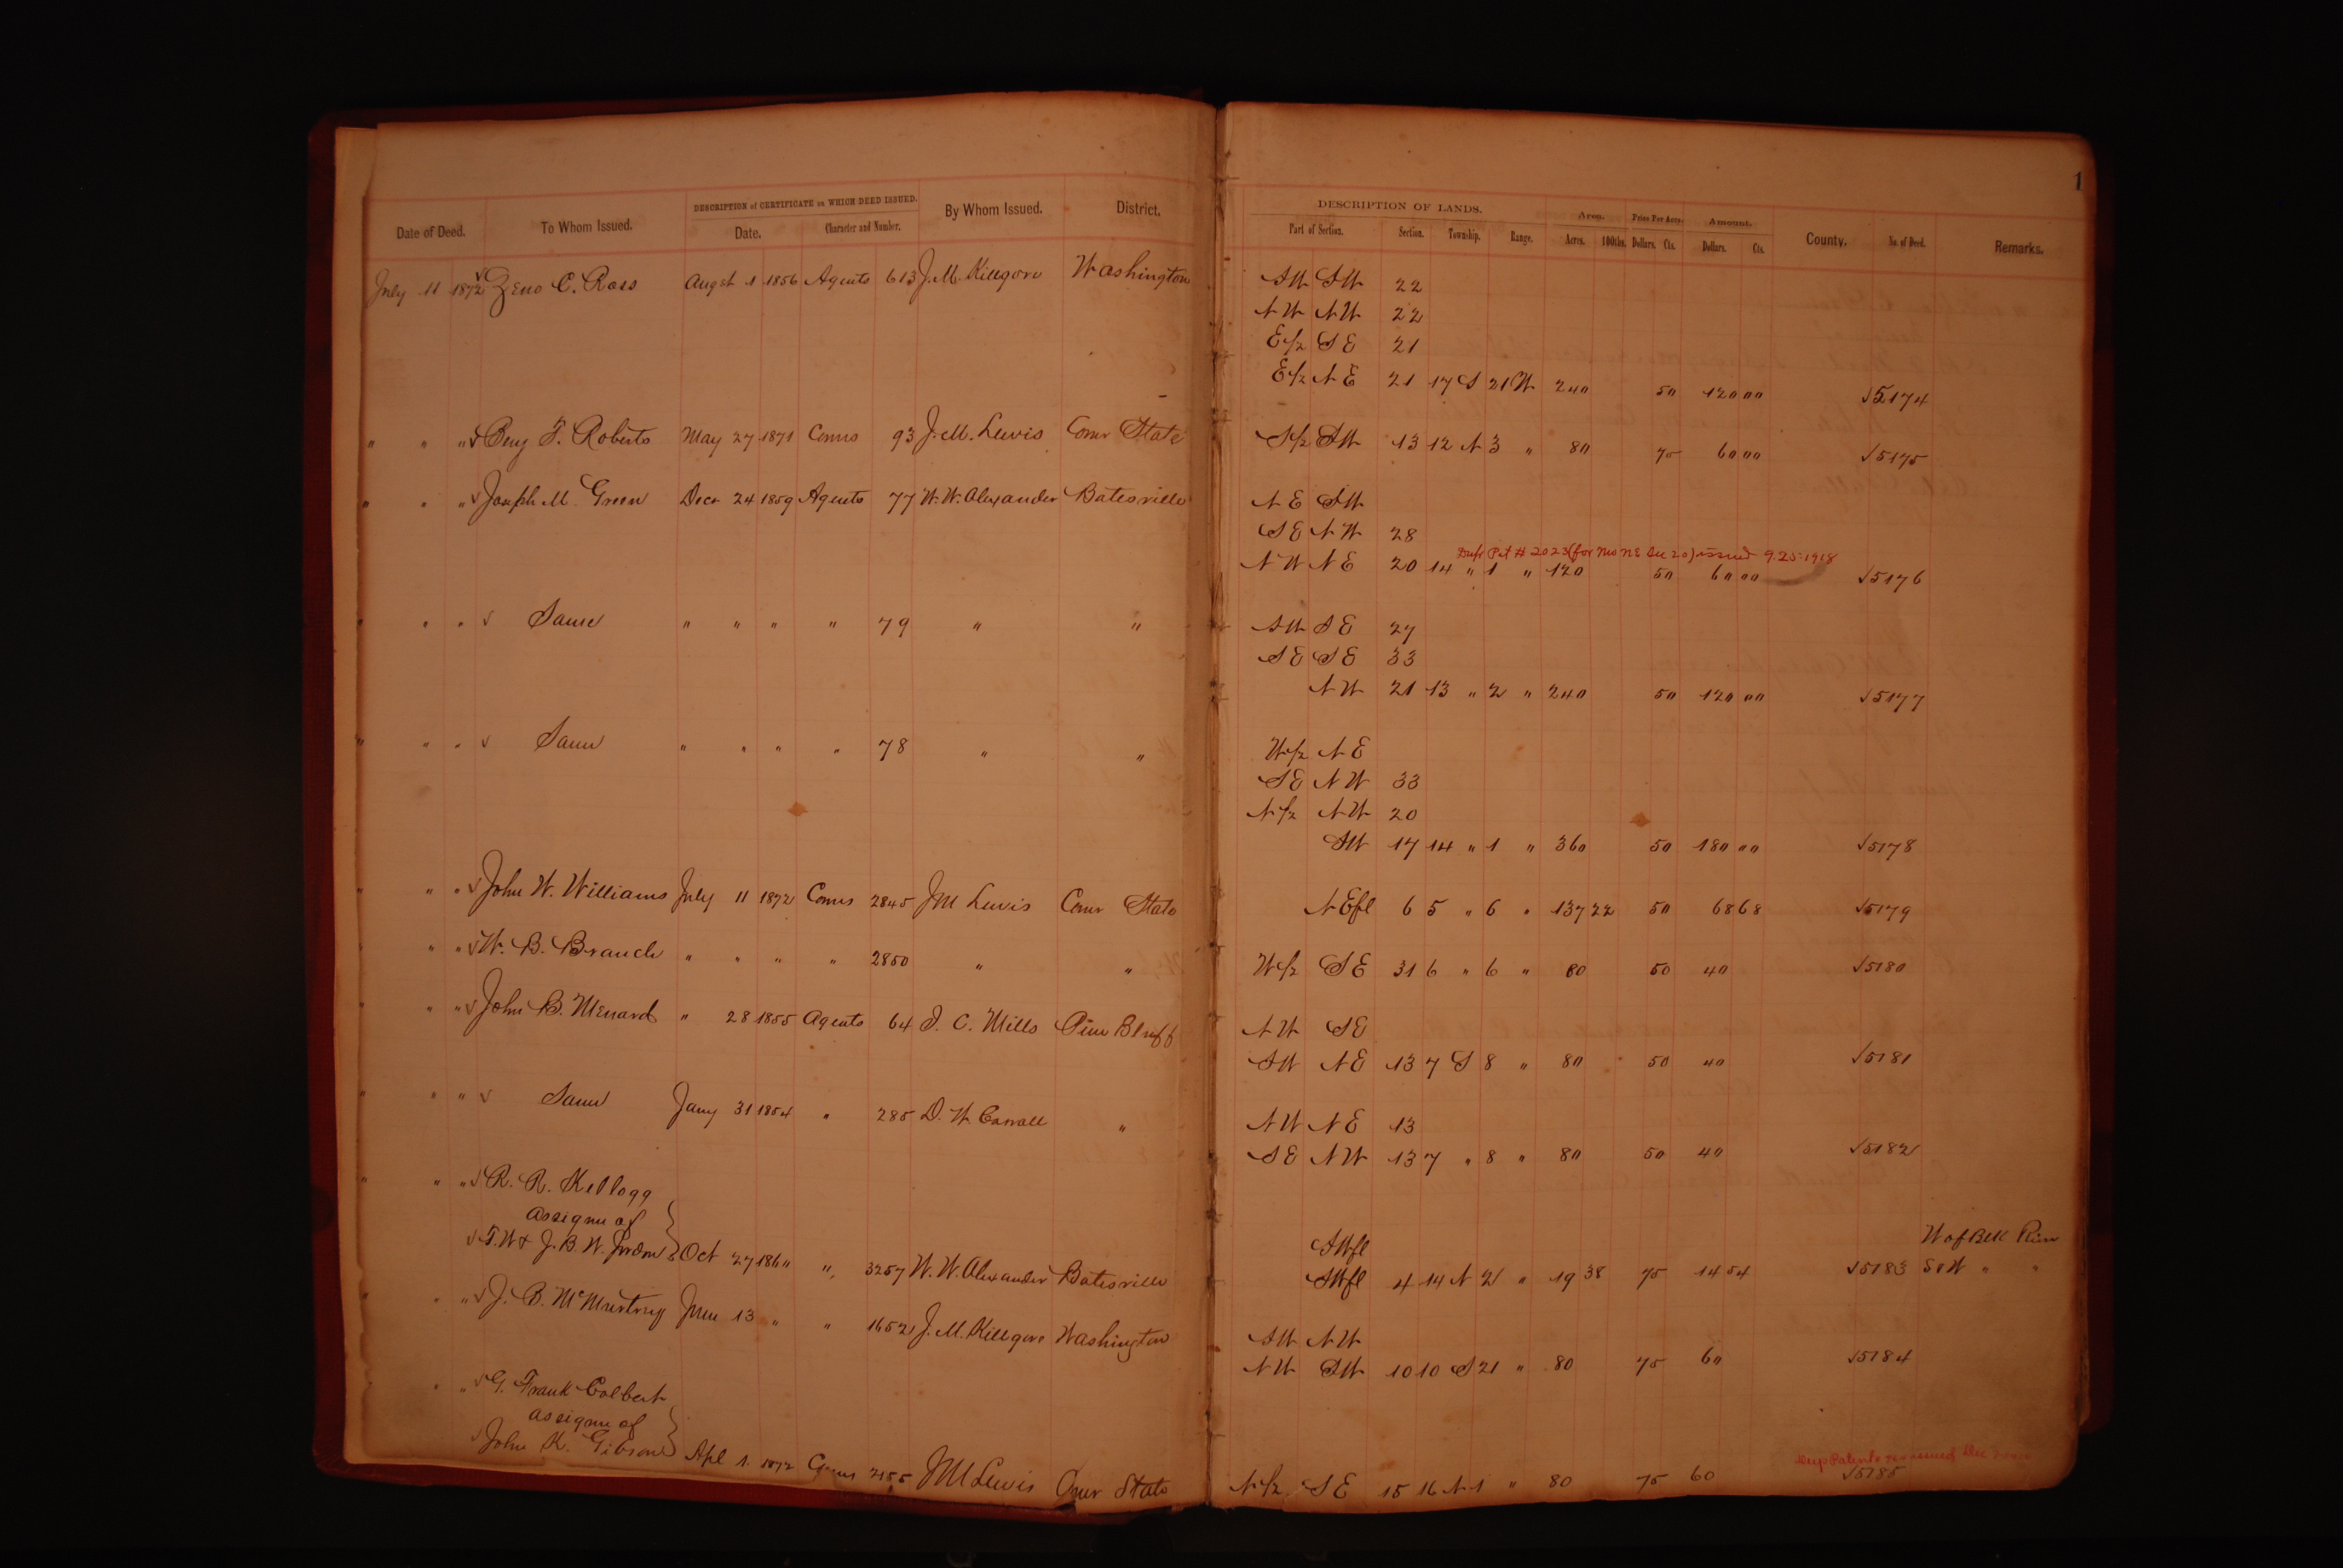 1
DESCRIPTION of CERTIFICATE on WHICH DEED ISSUED.
Date of Deed. To Whom Issued. Date. Character and Number. By Whom Issued. District.
DESCRIPTION OF LANDS. Area. Price Per Acre. Amount.
Part of Section. Section. Township. Range. Acres. 100ths. Dollars. Cts. Dollars. Cts. County. No. of Deed. Remarks.
July 11 1872 √ Zeno C. Ross Augst 1 1856 Agents 613 J. M. Killgore Washington SW SW 22
NW NW 22
E/2 SE 21
E/2 NE 21 17 S 21 W 240 50 120 00 √5174
" " " √ Benj F. Roberts May 27 1871 Comrs 93 J. M. Lewis Comr State S/2 SW 13 12 N 3 " 80 75 60 00 √5175
" " " √ Joseph M. Green Decr 24 1859 Agents 77 W. W. Alexander Batesville NE SW
SE NW 28
Dup Pat # 2023 (for NW NE Sec 20) issued 9-25-1918
NW NE 20 14 " 1 " 120 50 60 00 √5176
" " " √ Same " " " " 79 " " SW SE 27
SE SE 33
NW 21 13 " 2 " 240 50 120 00 √5177
" " " √ Same " " " " 78 " " W/2 NE
SE NW 33
N/2 NW 20
SW 17 14 " 1 " 360 50 180 00 √5178
" " " √ John W. Williams July 11 1872 Comrs 2845 J M Lewis Comr State NEfl 6 5 " 6 " 137 22 50 68 68 √5179
" " √ W. B. Branch " " " " 2850 " " W/2 SE 31 6 " 6 " 80 50 40 √5180
" " " √ John B. Menard " 28 1855 Agents 64 J. C. Mills Pine Bluff NW SE
SW NE 13 7 S 8 " 80 50 40 √5181
" " " √ Same Jany 31 1854 " 285 D. W. Carroll " NW NE 13
SE NW 13 7 " 8 " 80 50 40 √5182
" " " √ R. R. Kellogg
assignee of
√ F. W & J. B. W. Oct 27 186" " 3257 W. W. Alexander Batesville SWfl W of Blk River
SWfl 4 14 N 2 " 19 38 75 14 54 √5183 S & W " "
" " " √ J. B. McMurtrey June 13 " " 1652 J. M. Killgore Washington SW NW
NW SW 10 10 S 21 " 80 75 60 √5184
" " √ G. Frank Colbert
assignee of
√ John K. Gibson Apl 1 1872 Comrs 2155 J M Lewis Comr State N/2 SE 15 16 N 1 " 80 75 60 √5185
Dup Patent Dec